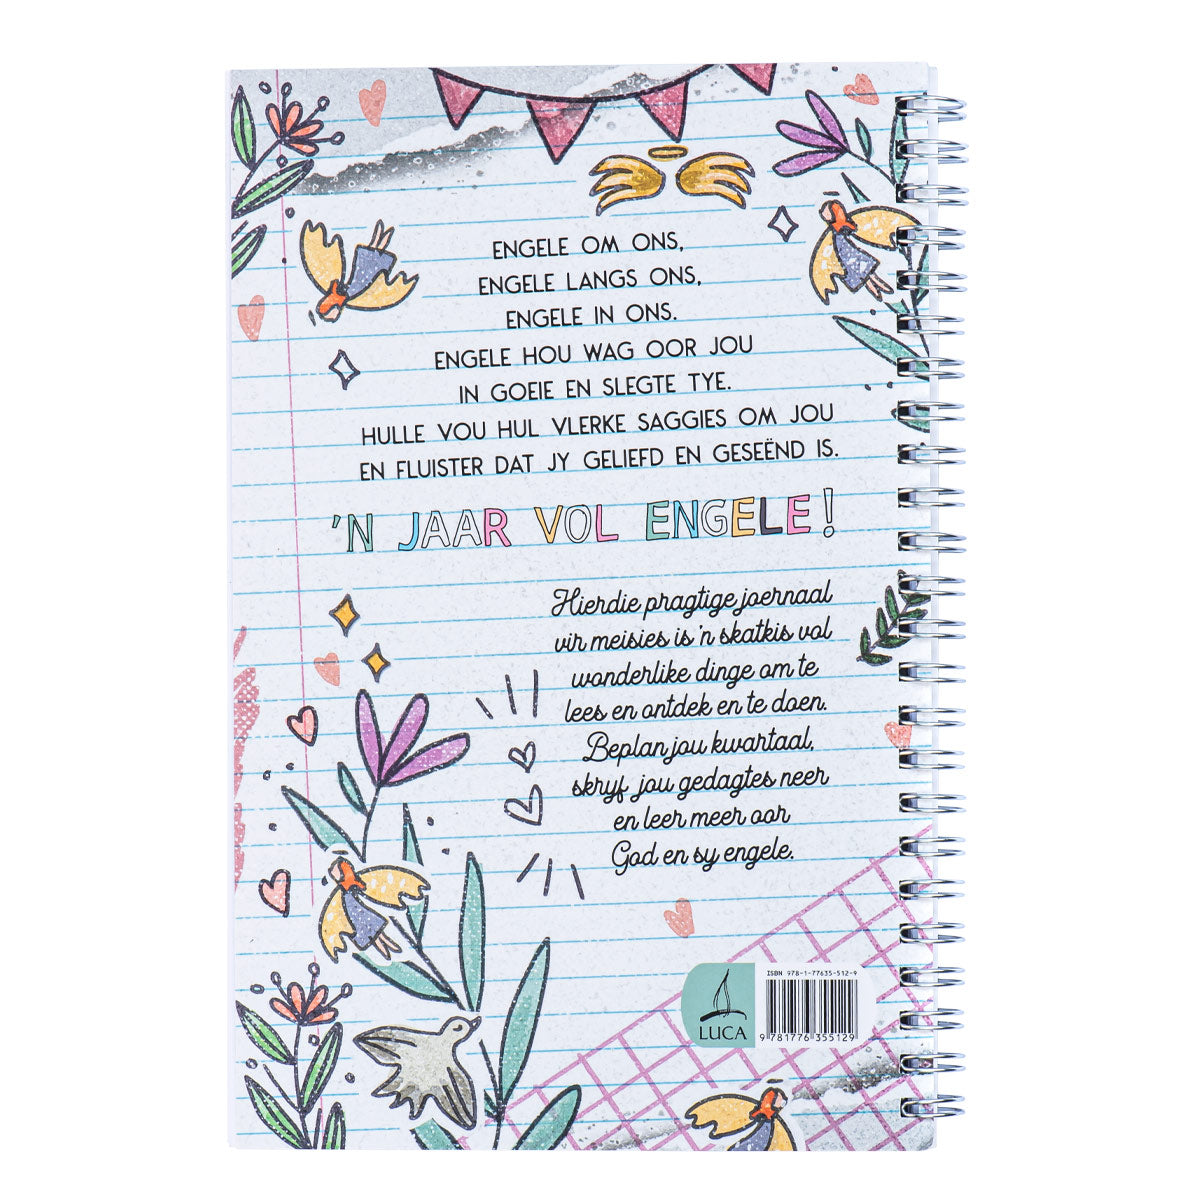 ENGELE OM ONS,
ENGELE LANGS ONS,
ENGELE IN ONS.
ENGELE HOU WAG OOR JOU
IN GOEIE EN SLEGTE TYE.
HULLE VOU HUL VLERKE SAGGIES OM JOU
EN FLUISTER DAT JY GELIEFD EN GESEËND IS.
'N JAAR VOL ENGELE!
Hierdie pragtige joernaal
vir meisies is 'n skatkis vol
wonderlike dinge om te
lees en ontdek en te doen.
Beplan jou kwartaal,
skryf jou gedagtes neer
en leer meer oor
God en sy engele.
LUCA
ISBN 978-1-77635-512-9
9 781776 355129